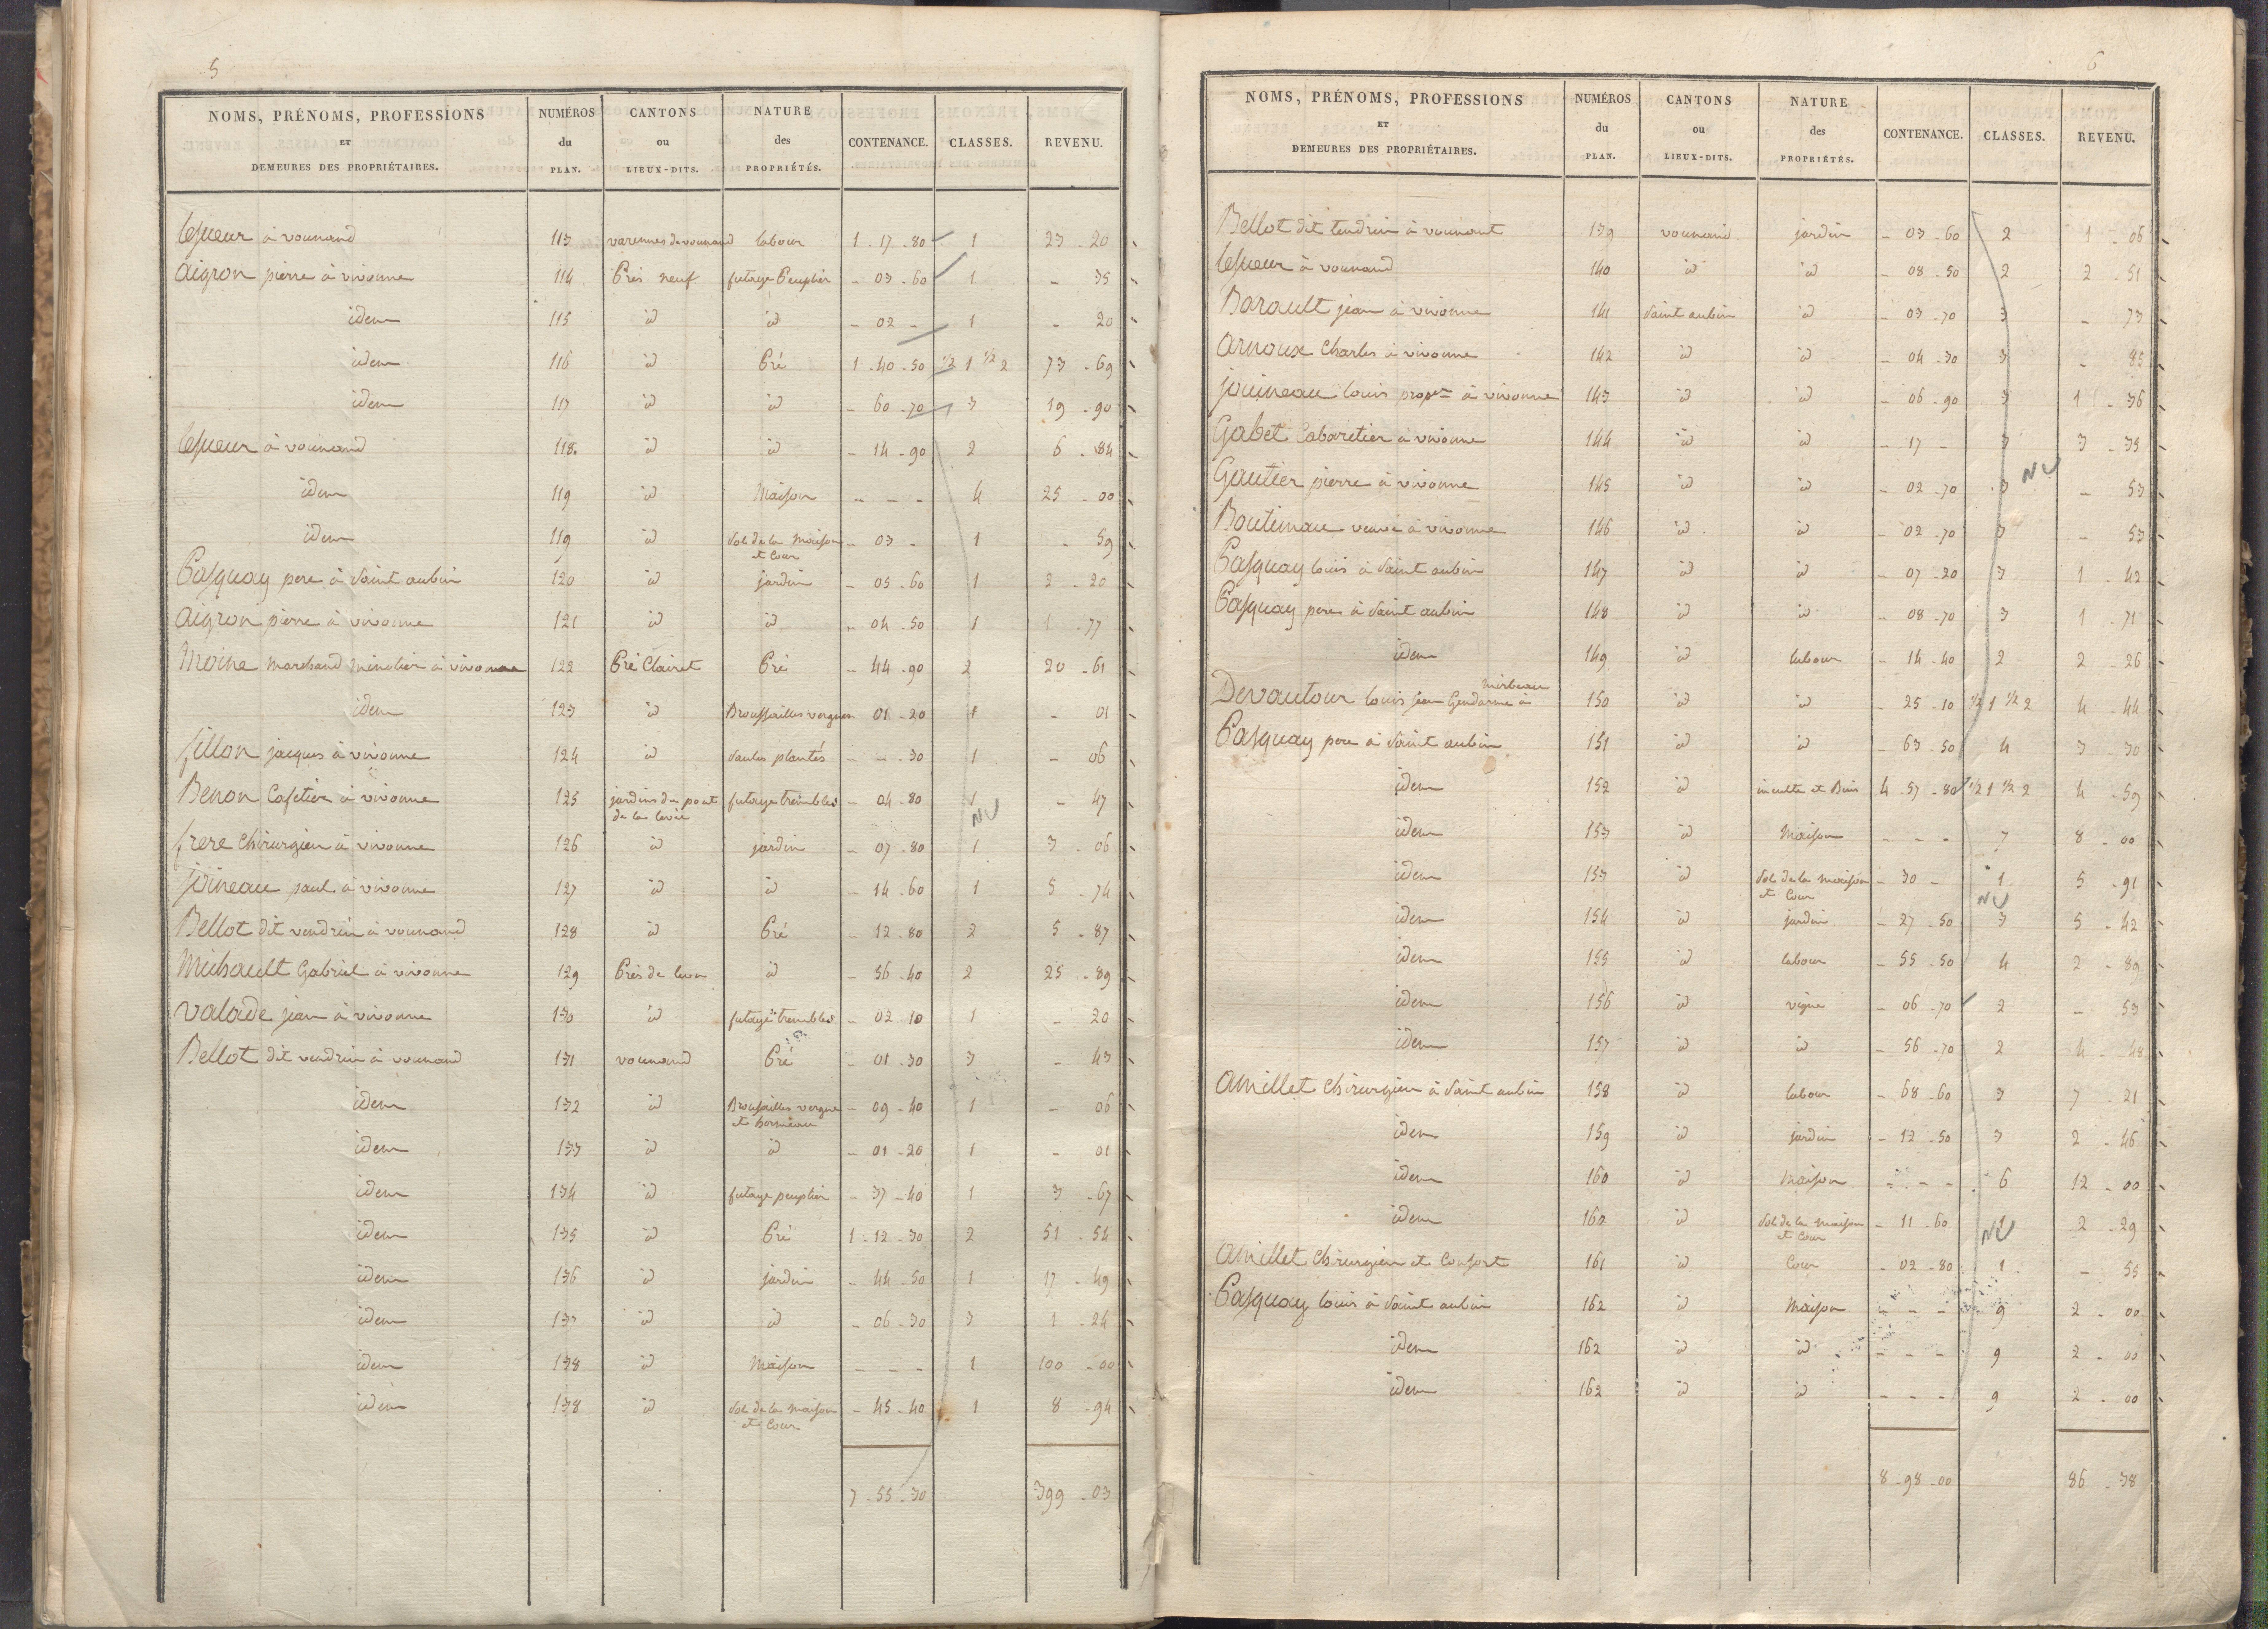 5
NOMS, PRÉNOMS, PROFESSIONS ET DEMEURES DES PROPRIÉTAIRES. | NUMÉROS du PLAN. | CANTONS ou LIEUX-DITS. | NATURE des PROPRIÉTÉS. | CONTENANCE. | CLASSES. | REVENU.
lesueur à vounand 113 varennes de vounand labour 1 - 17 - 80 1 23 - 20
aigron pierre à vivonne 114 Prés neuf futaye Peuplier - 03 - 60 1 - 35
idem 115 id id - 02 - 1 - 20
idem 116 id Pré 1 - 40 - 50 1/2 1 1/2 2 73 - 69
idem 117 id id - 60 - 70 3 19 - 90
lesueur à vounand 118. id id - 14 - 90 2 6 - 84
idem 119 id Maison - - - 4 25 - 00
idem 119 id Sol de la Maison et Cour - 03 - 1 - 59
Pasquay pere à Saint aubin 120 id jardin - 05 - 60 1 2 - 20
aigron pierre à vivonne 121 id id - 04 - 50 1 1 - 77
Moine marchand minotier à vivonne 122 Pré Clairet Pré - 44 - 90 2 20 - 61
idem 123 id Broussailles vergnes 01 - 20 1 - 01
fillon jacques à vivonne 124 id Saules plantés - - - 30 1 - 06
Benon Cafetier à vivonne 125 jardins du pont de la levée futaye trembles - 04 - 80 1 - 47
NU
frere Chirurgien à vivonne 126 id jardin - 07 - 80 1 3 - 06
joineau paul à vivonne 127 id id - 14 - 60 1 5 - 74
Bellot dit vendrin à vounand 128 id Pré - 12 - 80 2 5 - 87
Michault Gabriel à vivonne 129 Prés de id - 56 - 40 2 25 - 89
valade jean à vivonne 130 id futaye trembles - 02 10 1 - 20
Bellot dit vendrin à vounand 131 vounand Pré - 01 - 30 3 - 43
idem 132 id Broussailles vergne et - 09 - 40 1 - 06
idem 133 id id - 01 - 20 1 - 01
idem 134 id futaye peuplier - 37 - 40 1 3 - 67
idem 135 id Pré 1 - 12 - 30 2 51 - 54
idem 136 id jardin - 44 - 50 1 17 - 49
idem 137 id id - 06 - 30 3 1 - 24
idem 138 id Maison - - - 1 100 - 00
idem 138 id Sol de la maison et Cour - 45 - 40 1 8 - 94
7 - 55 - 30 399 - 03
6
NOMS, PRÉNOMS, PROFESSIONS ET DEMEURES DES PROPRIÉTAIRES. | NUMÉROS du PLAN. | CANTONS ou LIEUX-DITS. | NATURE des PROPRIÉTÉS. | CONTENANCE. | CLASSES. | REVENU.
Bellot dit à vounant 139 vounand jardin - 03 - 60 2 1 - 06
lesueur à vounand 140 id id - 08 - 50 2 2 - 51
Barault jean à vivonne 141 Saint aubin id - 03 - 70 3 - 73
arnoux Charles à vivonne 142 id id - 04 - 30 3 - 85
jouineau louis propre à vivonne 143 id id - 06 - 90 3 1 - 36
Gabet Cabaretier à vivonne 144 id id - 17 - 3 3 - 35
NU
Gautier pierre à vivonne 145 id id - 02 - 70 3 - 53
veuve à vivonne 146 id id - 02 - 70 3 - 53
Pasquay louis à Saint aubin 147 id id - 07 - 20 3 1 - 42
Pasquay pere à Saint aubin 148 id id - 08 - 70 3 1 - 71
idem 149 id labour - 14 - 40 2 2 - 26
Devautour louis jean Gendarme à mirbeau 150 id id - 25 - 10 1/2 1 1/2 2 4 - 44
Pasquay pere à Saint aubin 151 id id - 63 - 50 4 3 - 30
idem 152 id inculte et Bois 4 - 57 - 80 1/2 1 1/2 2 4 - 59
idem 153 id Maison - - - 7 8 - 00
idem 153 id Sol de la maison et Cour - 30 - 1 5 - 91
NU
idem 154 id jardin - 27 - 50 3 5 - 42
idem 155 id labour - 55 - 50 4 2 - 89
idem 156 id vigne - 06 - 70 2 - 53
idem 157 id id - 56 - 70 2 4 - 48
amillet Chirurgien à Saint aubin 158 id labour - 68 - 60 3 7 - 21
idem 159 id jardin - 12 - 50 3 2 - 46
idem 160 id Maison - - - 6 12 - 00
idem 160 id Sol de la maison et Cour - 11 - 60 1 2 - 29
NU
amillet Chirurgien et Consort 161 id Cour - 02 - 80 1 - 55
Pasquay louis à Saint aubin 162 id Maison - - - 9 2 - 00
idem 162 id id - - - 9 2 - 00
idem 162 id id - - - 9 2 - 00
8 - 98 - 00 86 - 38